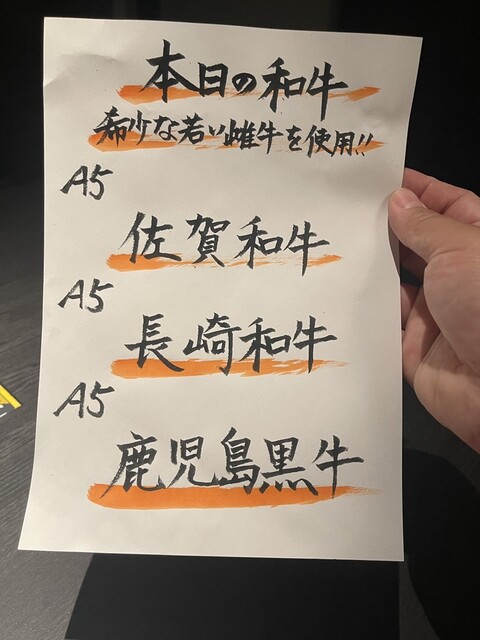 本日の和牛
希少な若い雌牛を使用!!
A5
佐賀和牛
A5
長崎和牛
A5
鹿児島黒牛